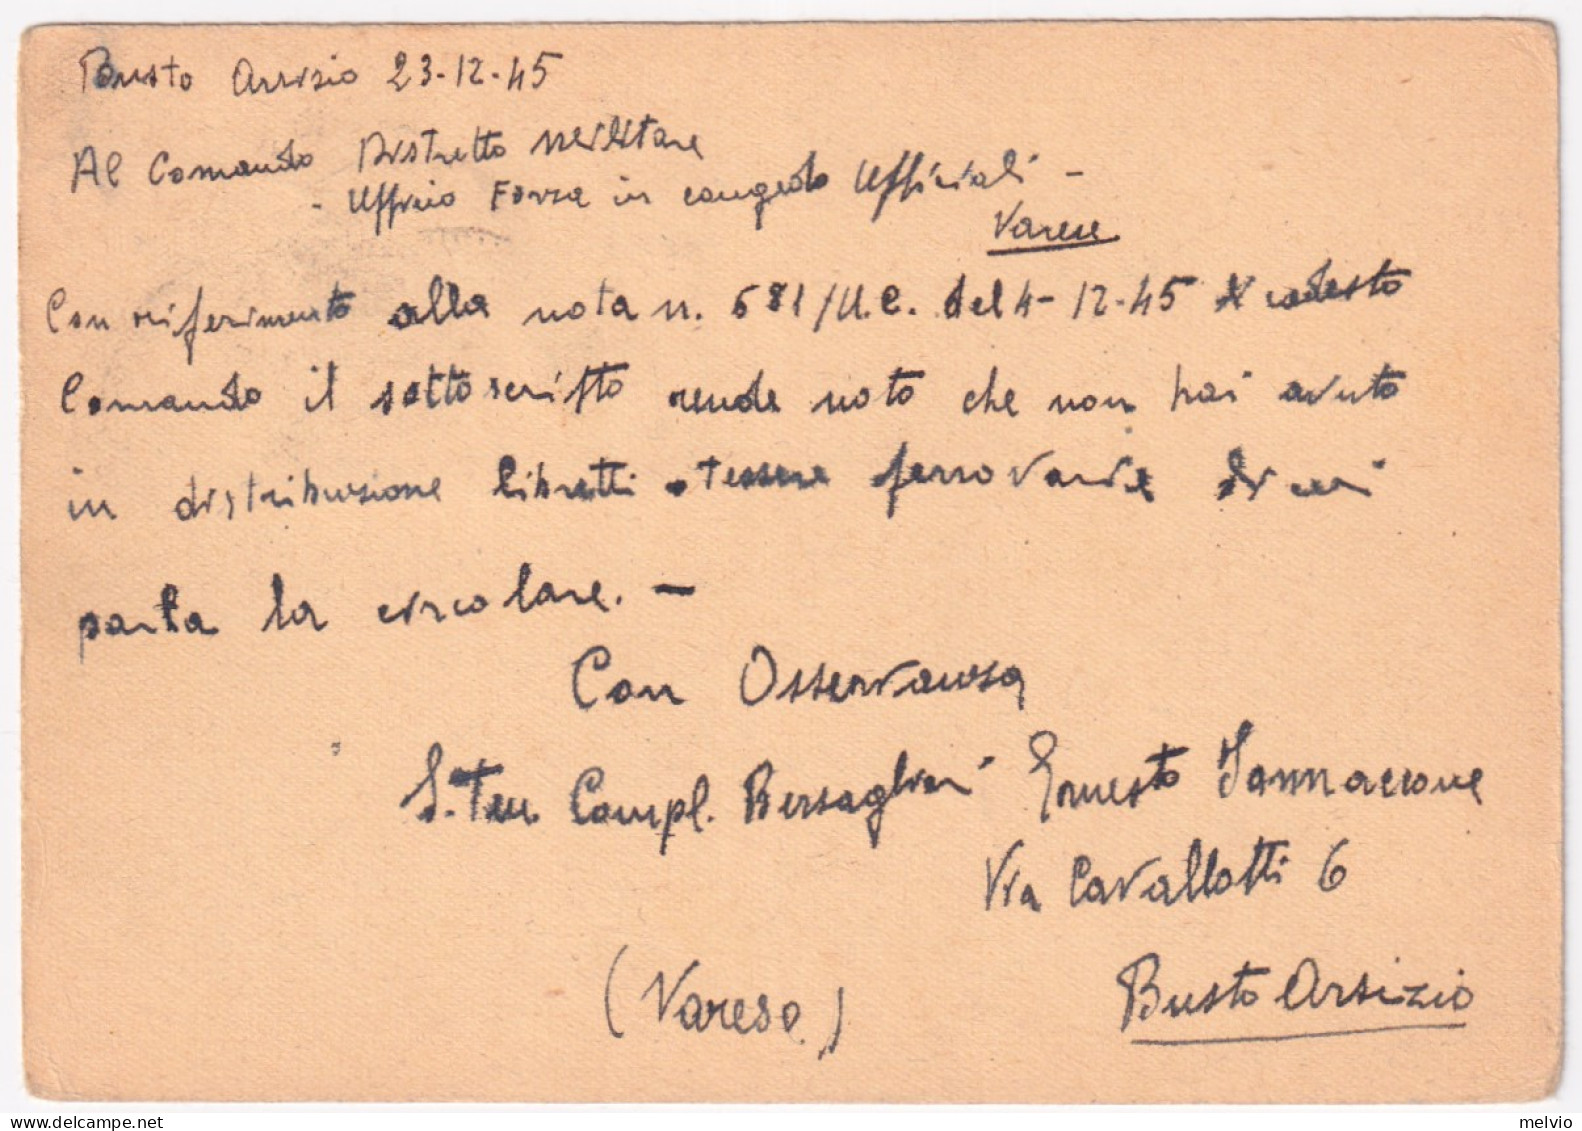 Busto Arsizio 23-12-45
Al Comando Distretto Militare
- Ufficio Forza in congedo Ufficiali -
Varese
Con riferimento alla nota n. 681/U.C. del 4-12-45 codesto
Comando il sottoscritto rende noto che non hai avuto
in distribuzione libretti tessere ferroviarie di cui
parla la circolare. -
Con Osservanza
S.Ten Compl. Bersaglieri Ernesto Iannaccone
Via Cavallotti 6
Busto Arsizio
(Varese)
melvio